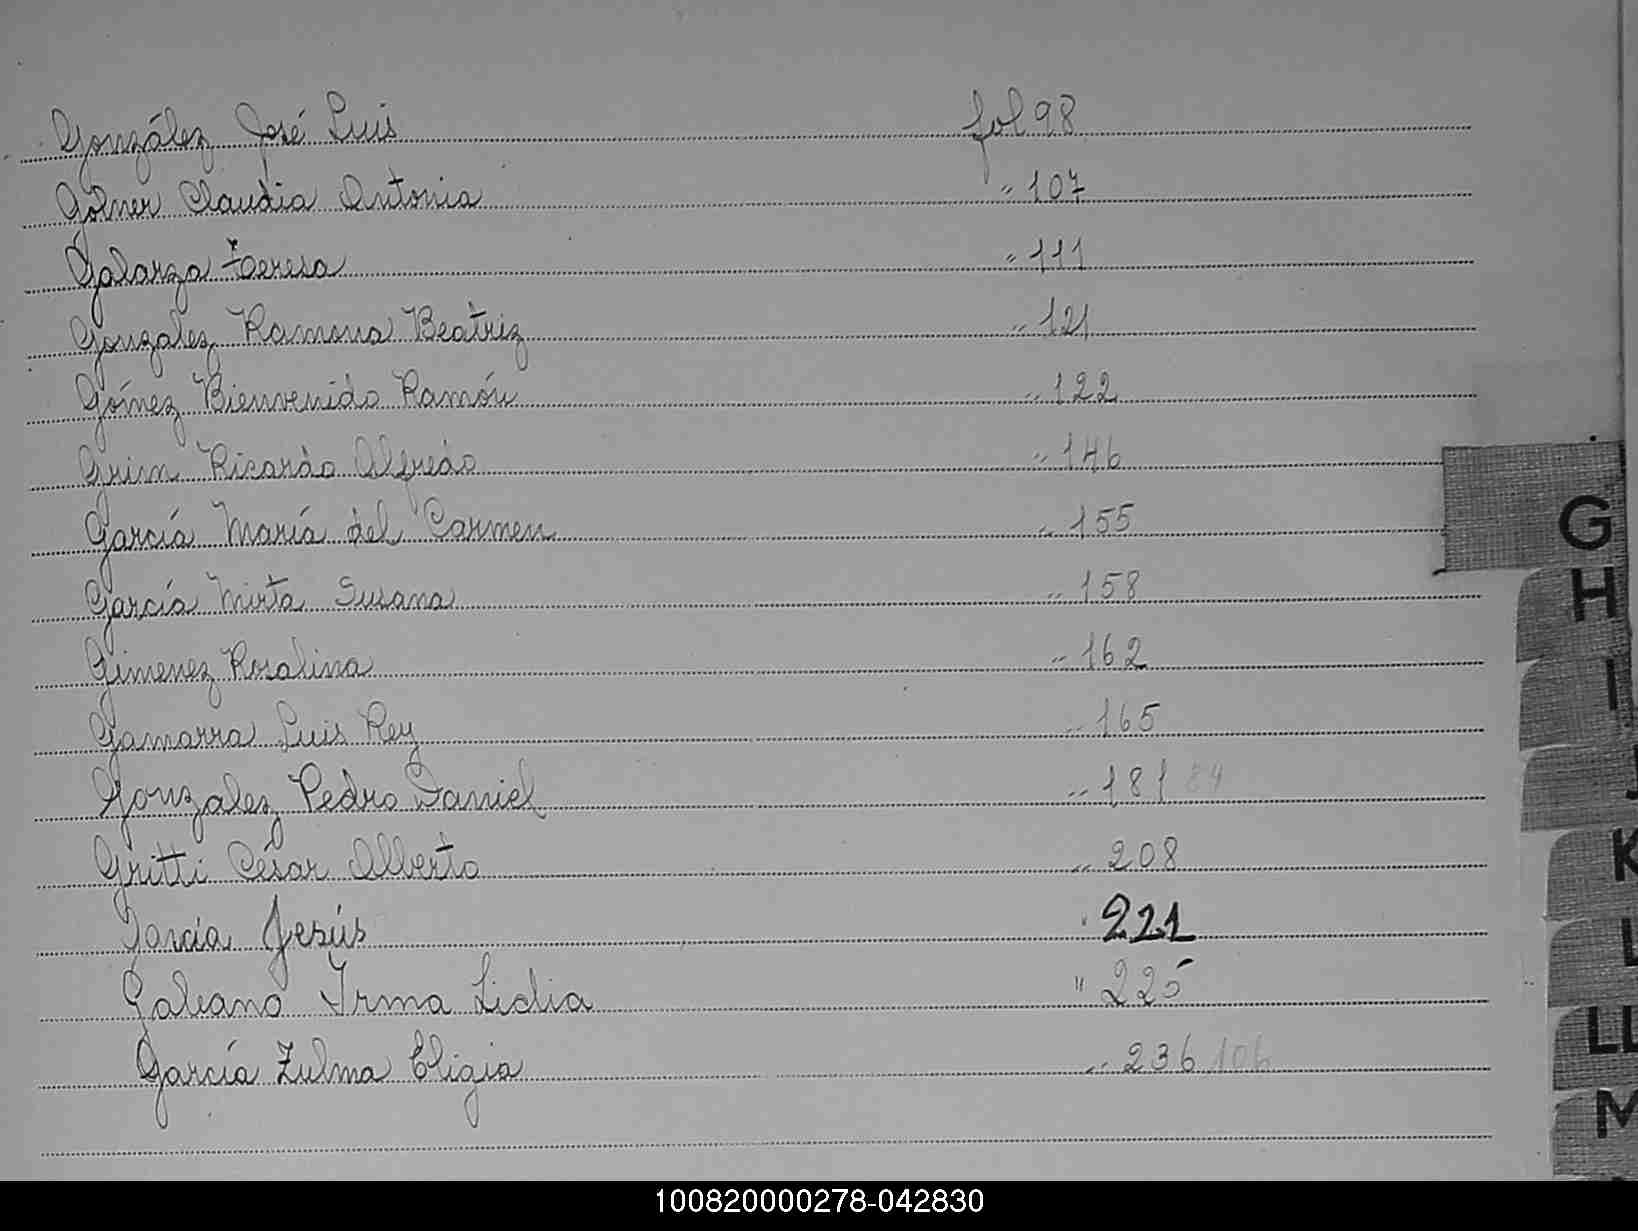 González José Luis fol 98
Golner Claudia Antonia " 107
Galarza Teresa " 111
Gonzalez Ramona Beatriz " 121
Gómez Bienvenido Ramón " 122
Grim Ricardo Alfredo " 146
García María del Carmen " 155
García Mirta Susana " 158
Gimenez Rosalina " 162
Gamarra Luis Rey " 165
Gonzalez Pedro Daniel " 181 84
Gritti César Alberto " 208
García Jesús " 221
Galeano Irma Lidia " 225
García Zulma Eligia " 236 106
G
H
I
J
K
L
LL
M
100820000278-042830